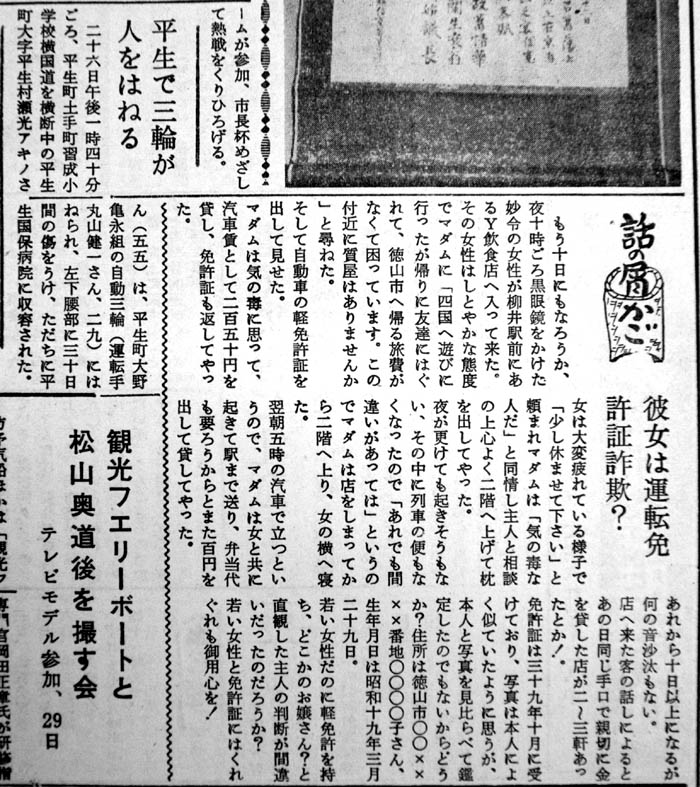 話の屑かご
彼女は運転免
許証詐欺?
もう十日にもなろうか、
夜十時ごろ黒眼鏡をかけた
妙令の女性が柳井駅前にあ
るY飲食店へ入って来た。
その女性はしとやかな態度
でマダムに「四国へ遊びに
行ったが帰りに友達にはぐ
れて、徳山市へ帰る旅費が
なくて困っています。この
付近に質屋はありませんか
」と尋ねた。
そして自動車の軽免許証を
出して見せた。
マダムは気の毒に思って、
汽車賃として二百五十円を
貸し、免許証も返してやっ
た。
女は大変疲れている様子で
「少し休ませて下さい」と
頼まれマダムは「気の毒な
人だ」と同情し主人と相談
の上心よく二階へ上げて枕
を出してやった。
夜が更けても起きそうもな
い、その中に列車の便もな
くなったので「あれでも間
違いがあっては」というの
でマダムは店をしまってか
ら二階へ上り、女の横へ寝
た。
翌朝五時の汽車で立つとい
うので、マダムは女と共に
起きて駅まで送り、弁当代
も要ろうからとまた百円を
出して貸してやった。
あれから十日以上になるが
何の音沙汰もない。
店へ来た客の話しによると
あの日同じ手口で親切に金
を貸した店が二〜三軒あっ
たとか!
免許証は三十九年十月に受
けており、写真は本人によ
く似ていたように思うが、
本人と写真を見比らべて鑑
定したのでもないからどう
か?住所は徳山市〇〇××
××番地〇〇〇〇子さん、
生年月日は昭和十九年三月
二十九日。
若い女性だのに軽免許を持
ち、どこかのお嬢さん?と
直観した主人の判断が間違
いだったのだろうか?
若い女性と免許証にはくれ
ぐれも御用心を!
ームが参加、市長杯めざし
て熱戦をくりひろげる。
平生で三輪が
人をはねる
二十六日午後一時四十分
ごろ、平生町土手町習成小
学校横国道を横断中の平生
町大字平生村瀬光アキノさ
ん(五五)は、平生町大野
亀永組の自動三輪(運転手
丸山健一さん、二九)には
ねられ、左下腰部に三十日
間の傷をうけ、ただちに平
生国保病院に収容された。
観光フエリーボートと
松山奥道後を撮す会
テレビモデル参加、29日